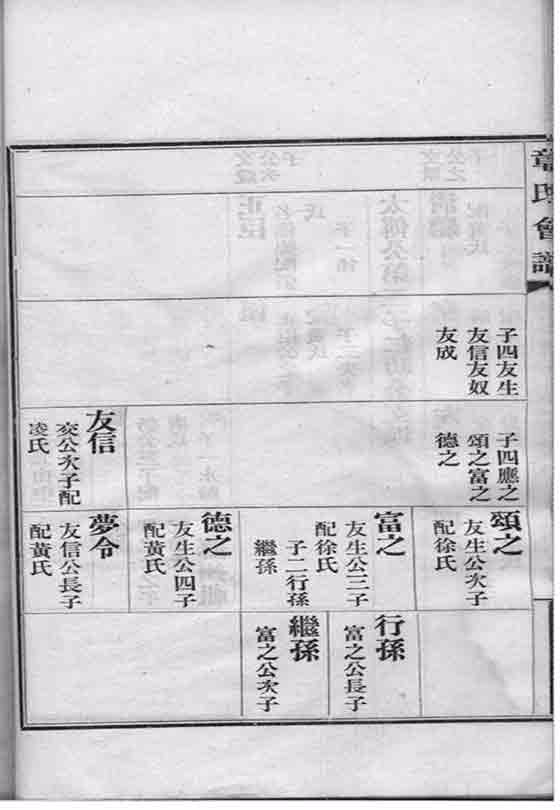 章氏會譜
子四友生
友信友奴
友成
子四應之
頌之富之
德之
友信
公次子配
凌氏
頌之
友生公次子
配徐氏
富之
友生公三子
配徐氏
子二行孫
繼孫
德之
友生公四子
配黃氏
夢令
友信公長子
配黃氏
行孫
富之公長子
繼孫
富之公次子